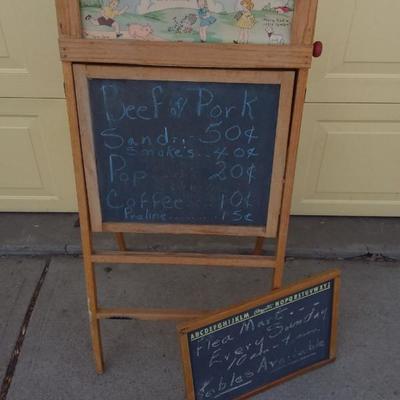 Beef or Pork
Sand..... 50¢
Smoke's... 40¢
Pop ....... 20¢
Coffee ..... 10¢
Praline ....... 15¢
ABCDEFGHIJKLM NOPQRSTUVWXYZ
Flea Mart - - -
Every Sunday
Tables Available